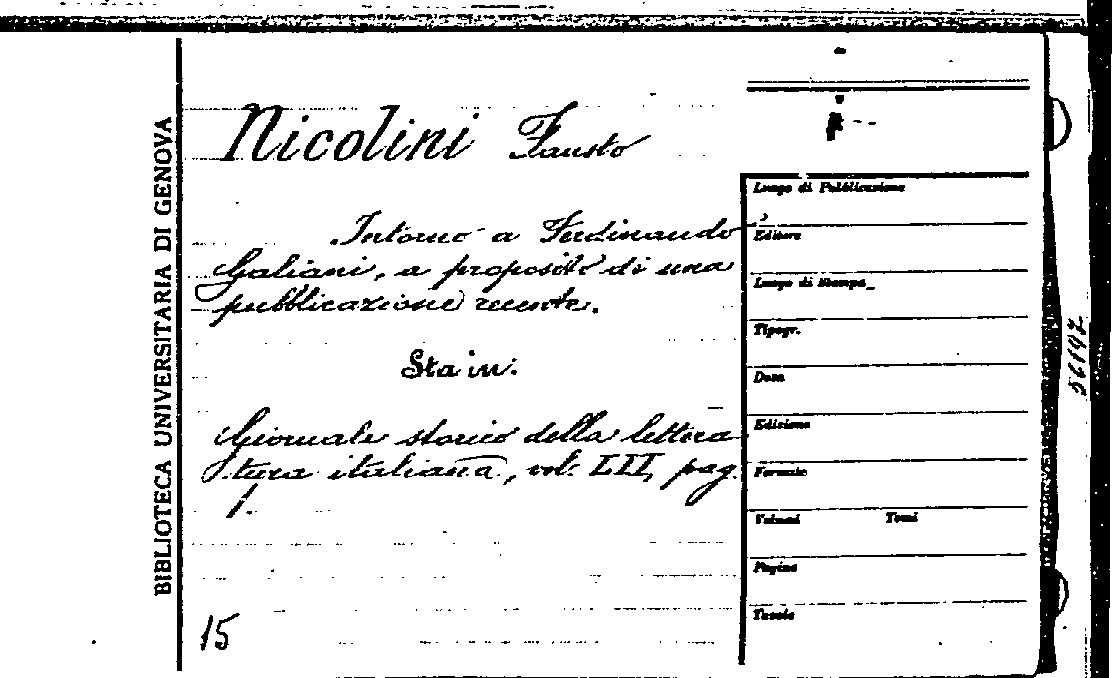 BIBLIOTECA UNIVERSITARIA DI GENOVA
Nicolini Fausto
Intorno a Ferdinando
Galiani, a proposito di una
pubblicazione recente.
Sta in:
Giornale storico della lettera
tura italiana, vol. LII, pag.
1.
15
Luogo di Pubblicazione
Editore
Luogo di Stampa
Tipogr.
Data
Edizione
Formato
Volumi Tomi
Pagine
Tavole